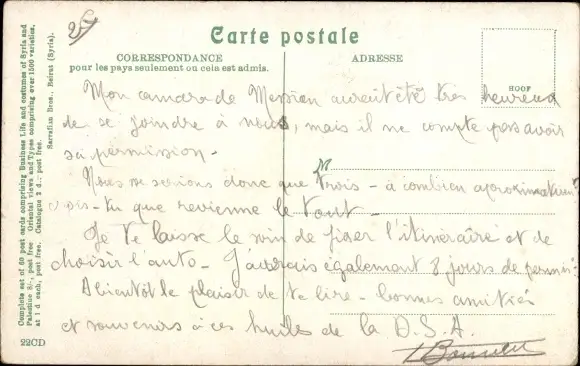 Carte postale
CORRESPONDANCE
pour les pays seulement ou cela est admis.
ADRESSE
Complete set of 60 post cards comprising Business Life and costumes of Syria and
Palestine 8/-, post free Oriental views and Types comprising over 1500 variaties,
at 1 d each, post free. Catalogue 2 d., post free.
Sarrafian Bros., Beirut (Syria).
22CD
Mon camarade aurait été très heureux
de se joindre à nous, mais il ne compte pas avoir
sa permission -
Nous ne serions donc que trois - à combien
vois-tu que revienne le tout -
Je te laisse le soin de fixer l'itinéraire et de
choisir l'auto - J'aurais également 8 jours de
A bientôt le plaisir de te lire - bonnes amitiés
et souvenirs à ces huiles de la D.S.A.